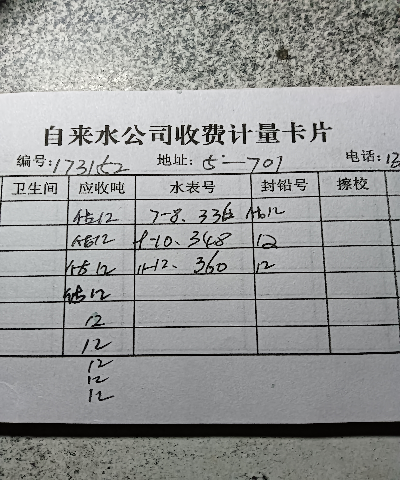 自来水公司收费计量卡片
编号:173152 地址: 5-701 电话:13
卫生间 应收吨 水表号 封铅号 擦校
估12 7-8、336 估12
估12 9-10、348 12
估12 11-12、360 12
估12
12
12
12
12
12